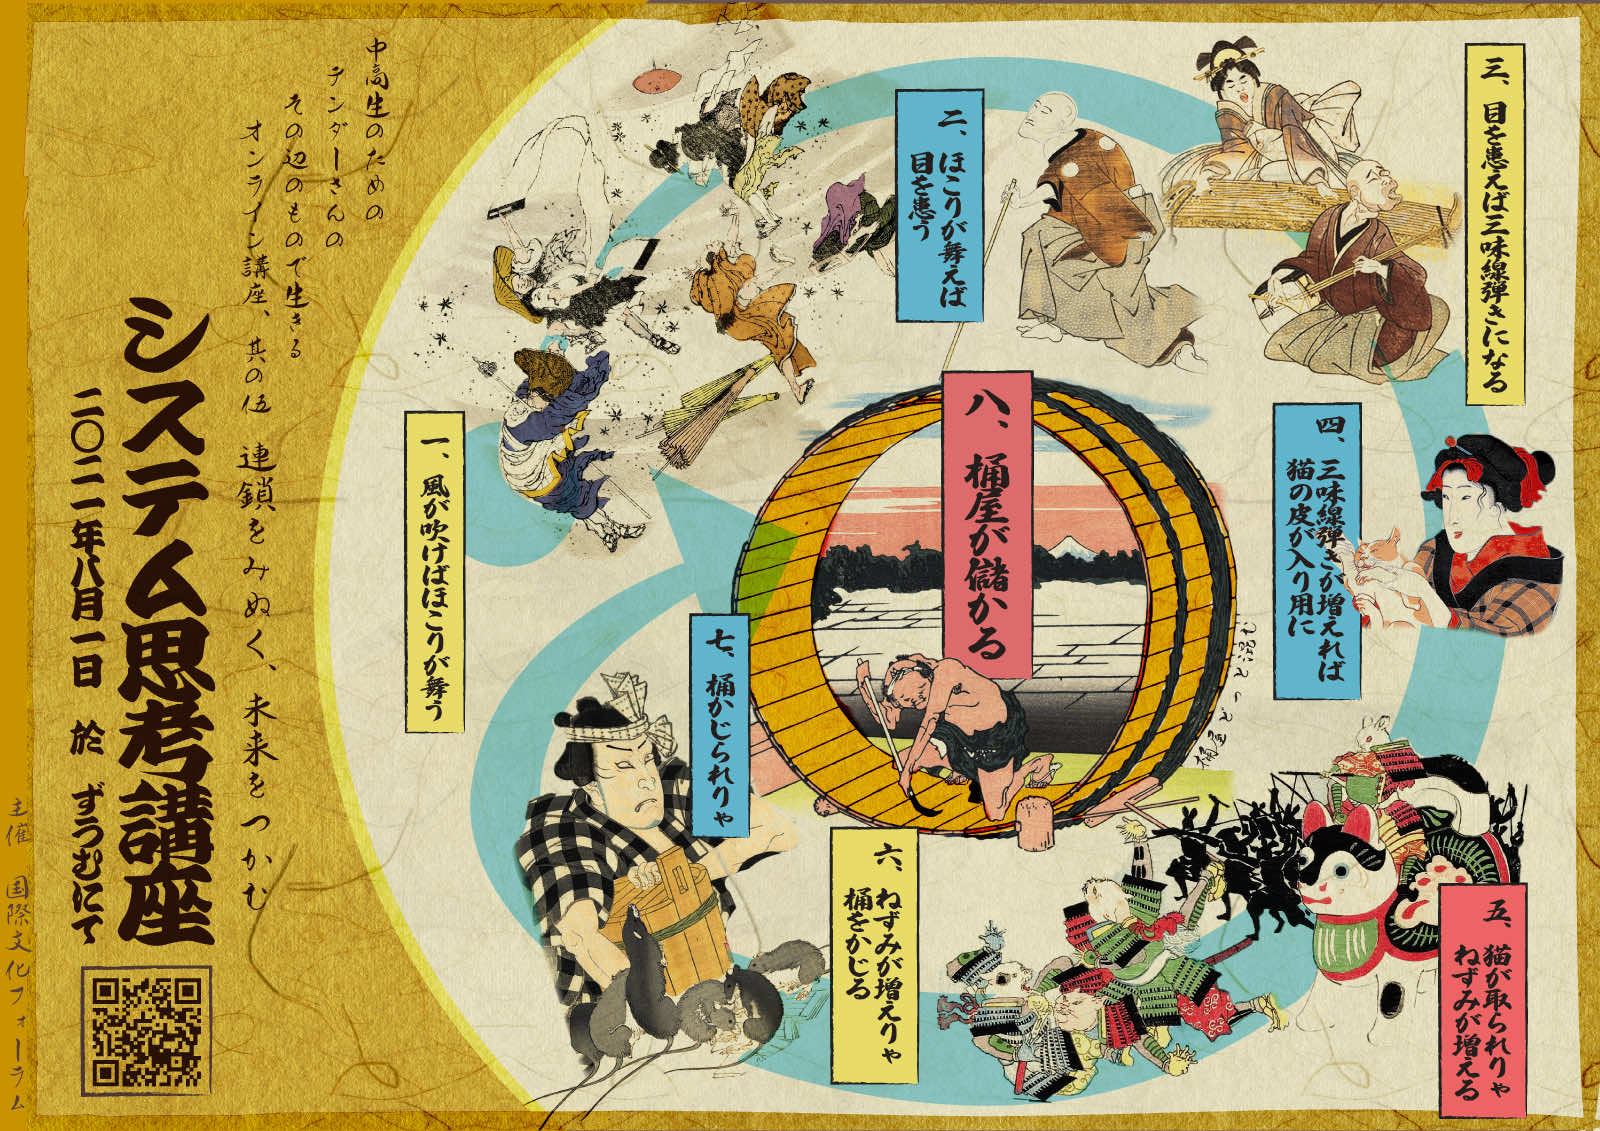 三、目を患えば三味線弾きになる
二、ほこりが舞えば
目を患う
四、三味線弾きが増えれば
猫の皮が入り用に
八、桶屋が儲かる
一、風が吹けばほこりが舞う
七、桶かじられりゃ
六、ねずみが増えりゃ
桶をかじる
五、猫が取られりゃ
ねずみが増える
中高生のための
テンダーさんの
その辺のもので生きる
オンライン講座、其の伍 連鎖をみぬく、未来をつかむ
システム思考講座
二〇二一年八月一日 於 ずうむにて
主催 国際文化フォーラム